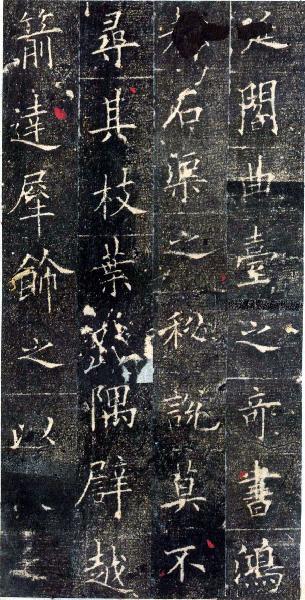 延閣曲臺之奇書鴻
石渠之秘説莫不
尋其枝葉隅辟越
箭達犀飾之以